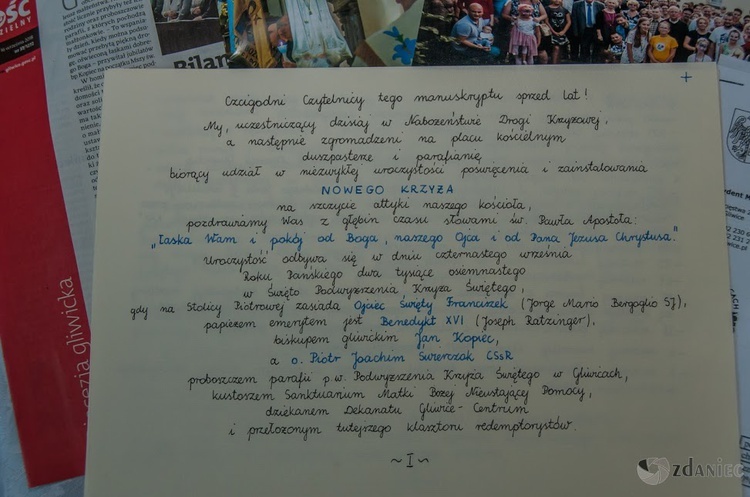 +
Czcigodni Czytelnicy tego manuskryptu sprzed lat!
My, uczestniczący dzisiaj w Nabożeństwie Drogi Krzyżowej,
a następnie zgromadzeni na placu kościelnym
duszpasterze i parafianie
biorący udział w niezwykłej uroczystości poświęcenia i zainstalowania
NOWEGO KRZYŻA
na szczycie attyki naszego kościoła,
pozdrawiamy Was z głębin czasu słowami św. Pawła Apostoła:
„Łaska Wam i pokój od Boga, naszego Ojca i od Pana Jezusa Chrystusa."
Uroczystość odbywa się w dniu czternastego września
Roku Pańskiego dwa tysiące osiemnastego
w Święto Podwyższenia Krzyża Świętego,
gdy na Stolicy Piotrowej zasiada Ojciec Święty Franciszek (Jorge Mario Bergoglio SJ),
papieżem emerytem jest Benedykt XVI (Joseph Ratzinger),
biskupem gliwickim Jan Kopiec,
a o. Piotr Joachim Świerczok CSsR
proboszczem parafii p.w. Podwyższenia Krzyża Świętego w Gliwicach,
kustoszem Sanktuarium Matki Bożej Nieustającej Pomocy,
dziekanem Dekanatu Gliwice-Centrum
i przełożonym tutejszego klasztoru redemptorystów.
~I~
Bilan
ezja gliwicka
zdaniec